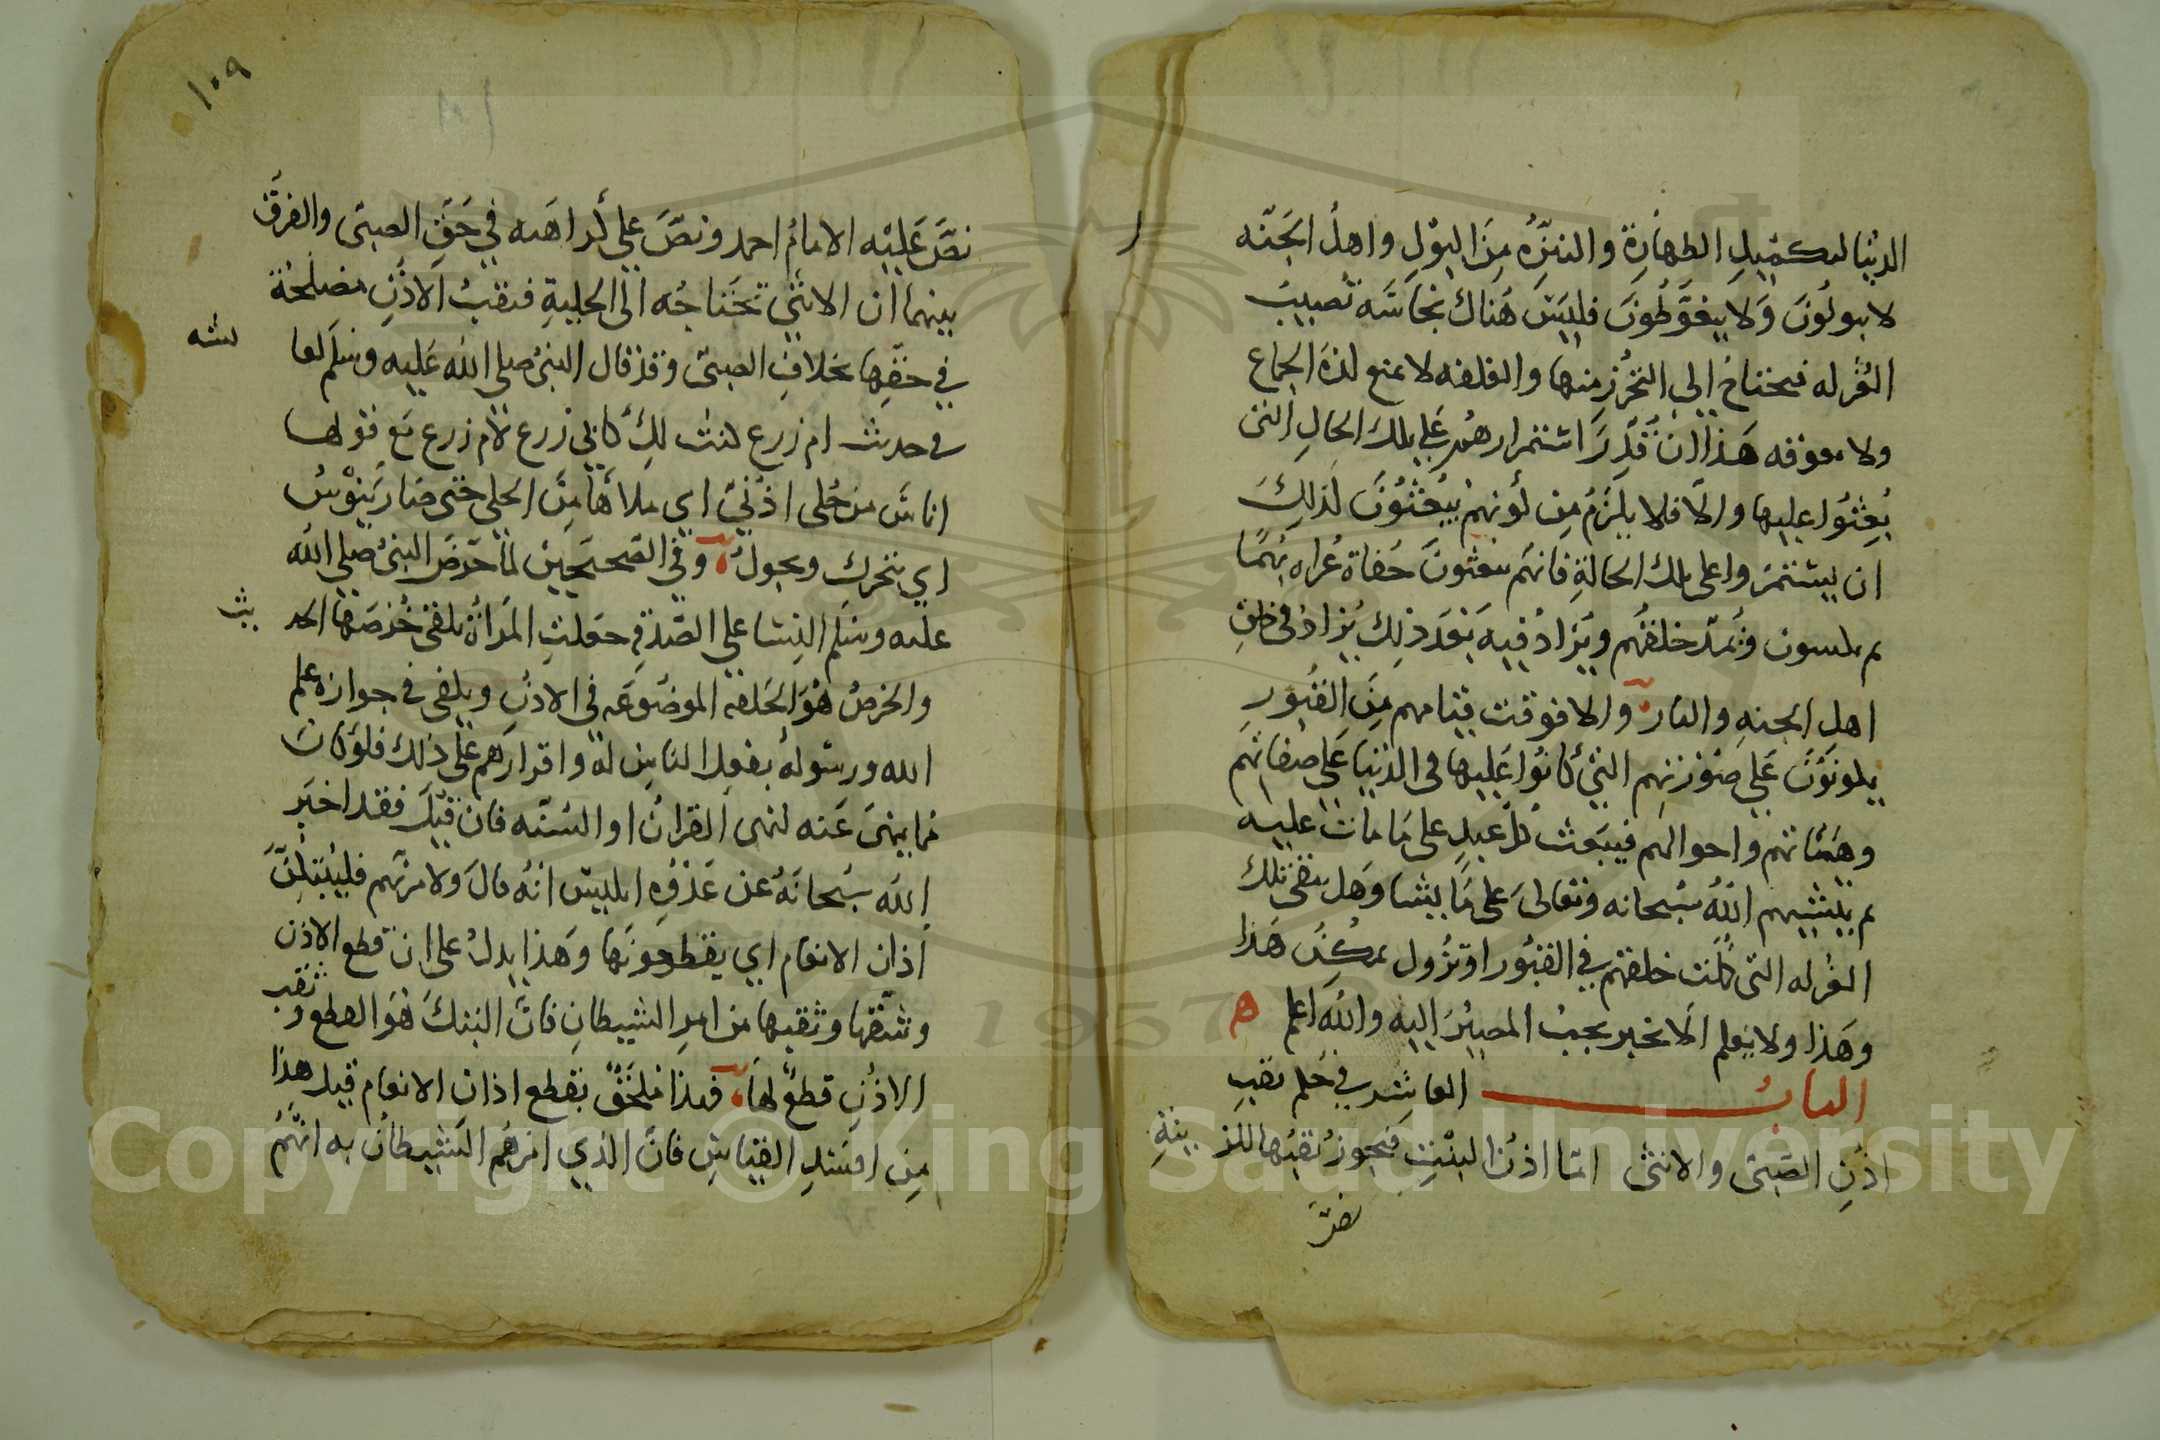 الدنيا لتكميل الطهارة والتنزه من البول واهل الجنه
لا يبولون ولا يتغوطون فليس هناك نجاسه تصيب
الغرله فيحتاج الى التحرز منها والقلفه لا تمنع لذة الجماع
ولا تعوقه هذا ان قدر استمرارهم على تلك الحال التى
بعثوا عليها والا فلا يلزم من كونهم يبعثون كذلك
ان يستمروا على تلك الحالة فانهم يبعثون حفاة عراه بهما
ثم يكسون ويمد خلقهم ويزاد فيه بعد ذلك يزاد فى خلق
اهل الجنه والنار والا فوقت قيامهم من القبور
يكونون على صورتهم التي كانوا عليها فى الدنيا على صفاتهم
وهيئاتهم واحوالهم فيبعث كل عبد على ما مات عليه
ثم ينشيهم الله سبحانه وتعالى على ما يشا وهل تبقى تلك
الغرله التى كملت خلقتهم في القبور او تزول يمكن هذا
وهذا ولا يعلم الا بخبر يجب المصير اليه والله اعلم ه
الباب العاشر في حكم ثقب
اذن الصبى والانثى اما اذن البنت فيجوز ثقبها للزينة
نص
١٠٩
نص عليه الامام احمد ونص على كراهته في حق الصبى والفرق
بينهما ان الانثى تحتاجه الى الحلية فثقب الاذن مصلحة
في حقها بخلاف الصبى وقد قال النبى صلى الله عليه وسلم لعا
ئشه
فى حديث ام زرع كنت لك كابي زرع لام زرع مع قولها
اناس من حلى اذني اي ملاها من الحلي حتى صار ينوس
اي يتحرك ويجول وفي الصحيحين لما حرض النبى صلى الله
عليه وسلم النسا على الصدقة جعلت المراة تلقى خرصها الحد
يث
والخرص هو الحلقه الموضوعه في الاذن ويكفى في جوازه علم
الله ورسوله بفعل الناس له واقرارهم على ذلك فلو كان
مما ينهى عنه لنهى القران او السنه فان قيل فقد اخبر
الله سبحانه عن عدوه ابليس انه قال ولامرنهم فليبتكن
اذان الانعام اي يقطعونها وهذا يدل على ان قطع الاذن
وشقها وثقبها من امر الشيطان فان البتك هو القطع وثقب
الاذن قطع لها فهذا ملحق بقطع اذان الانعام قيل هذا
من افسد القياس فان الذي امرهم الشيطان به انهم
Copyright © King Saud University
1957